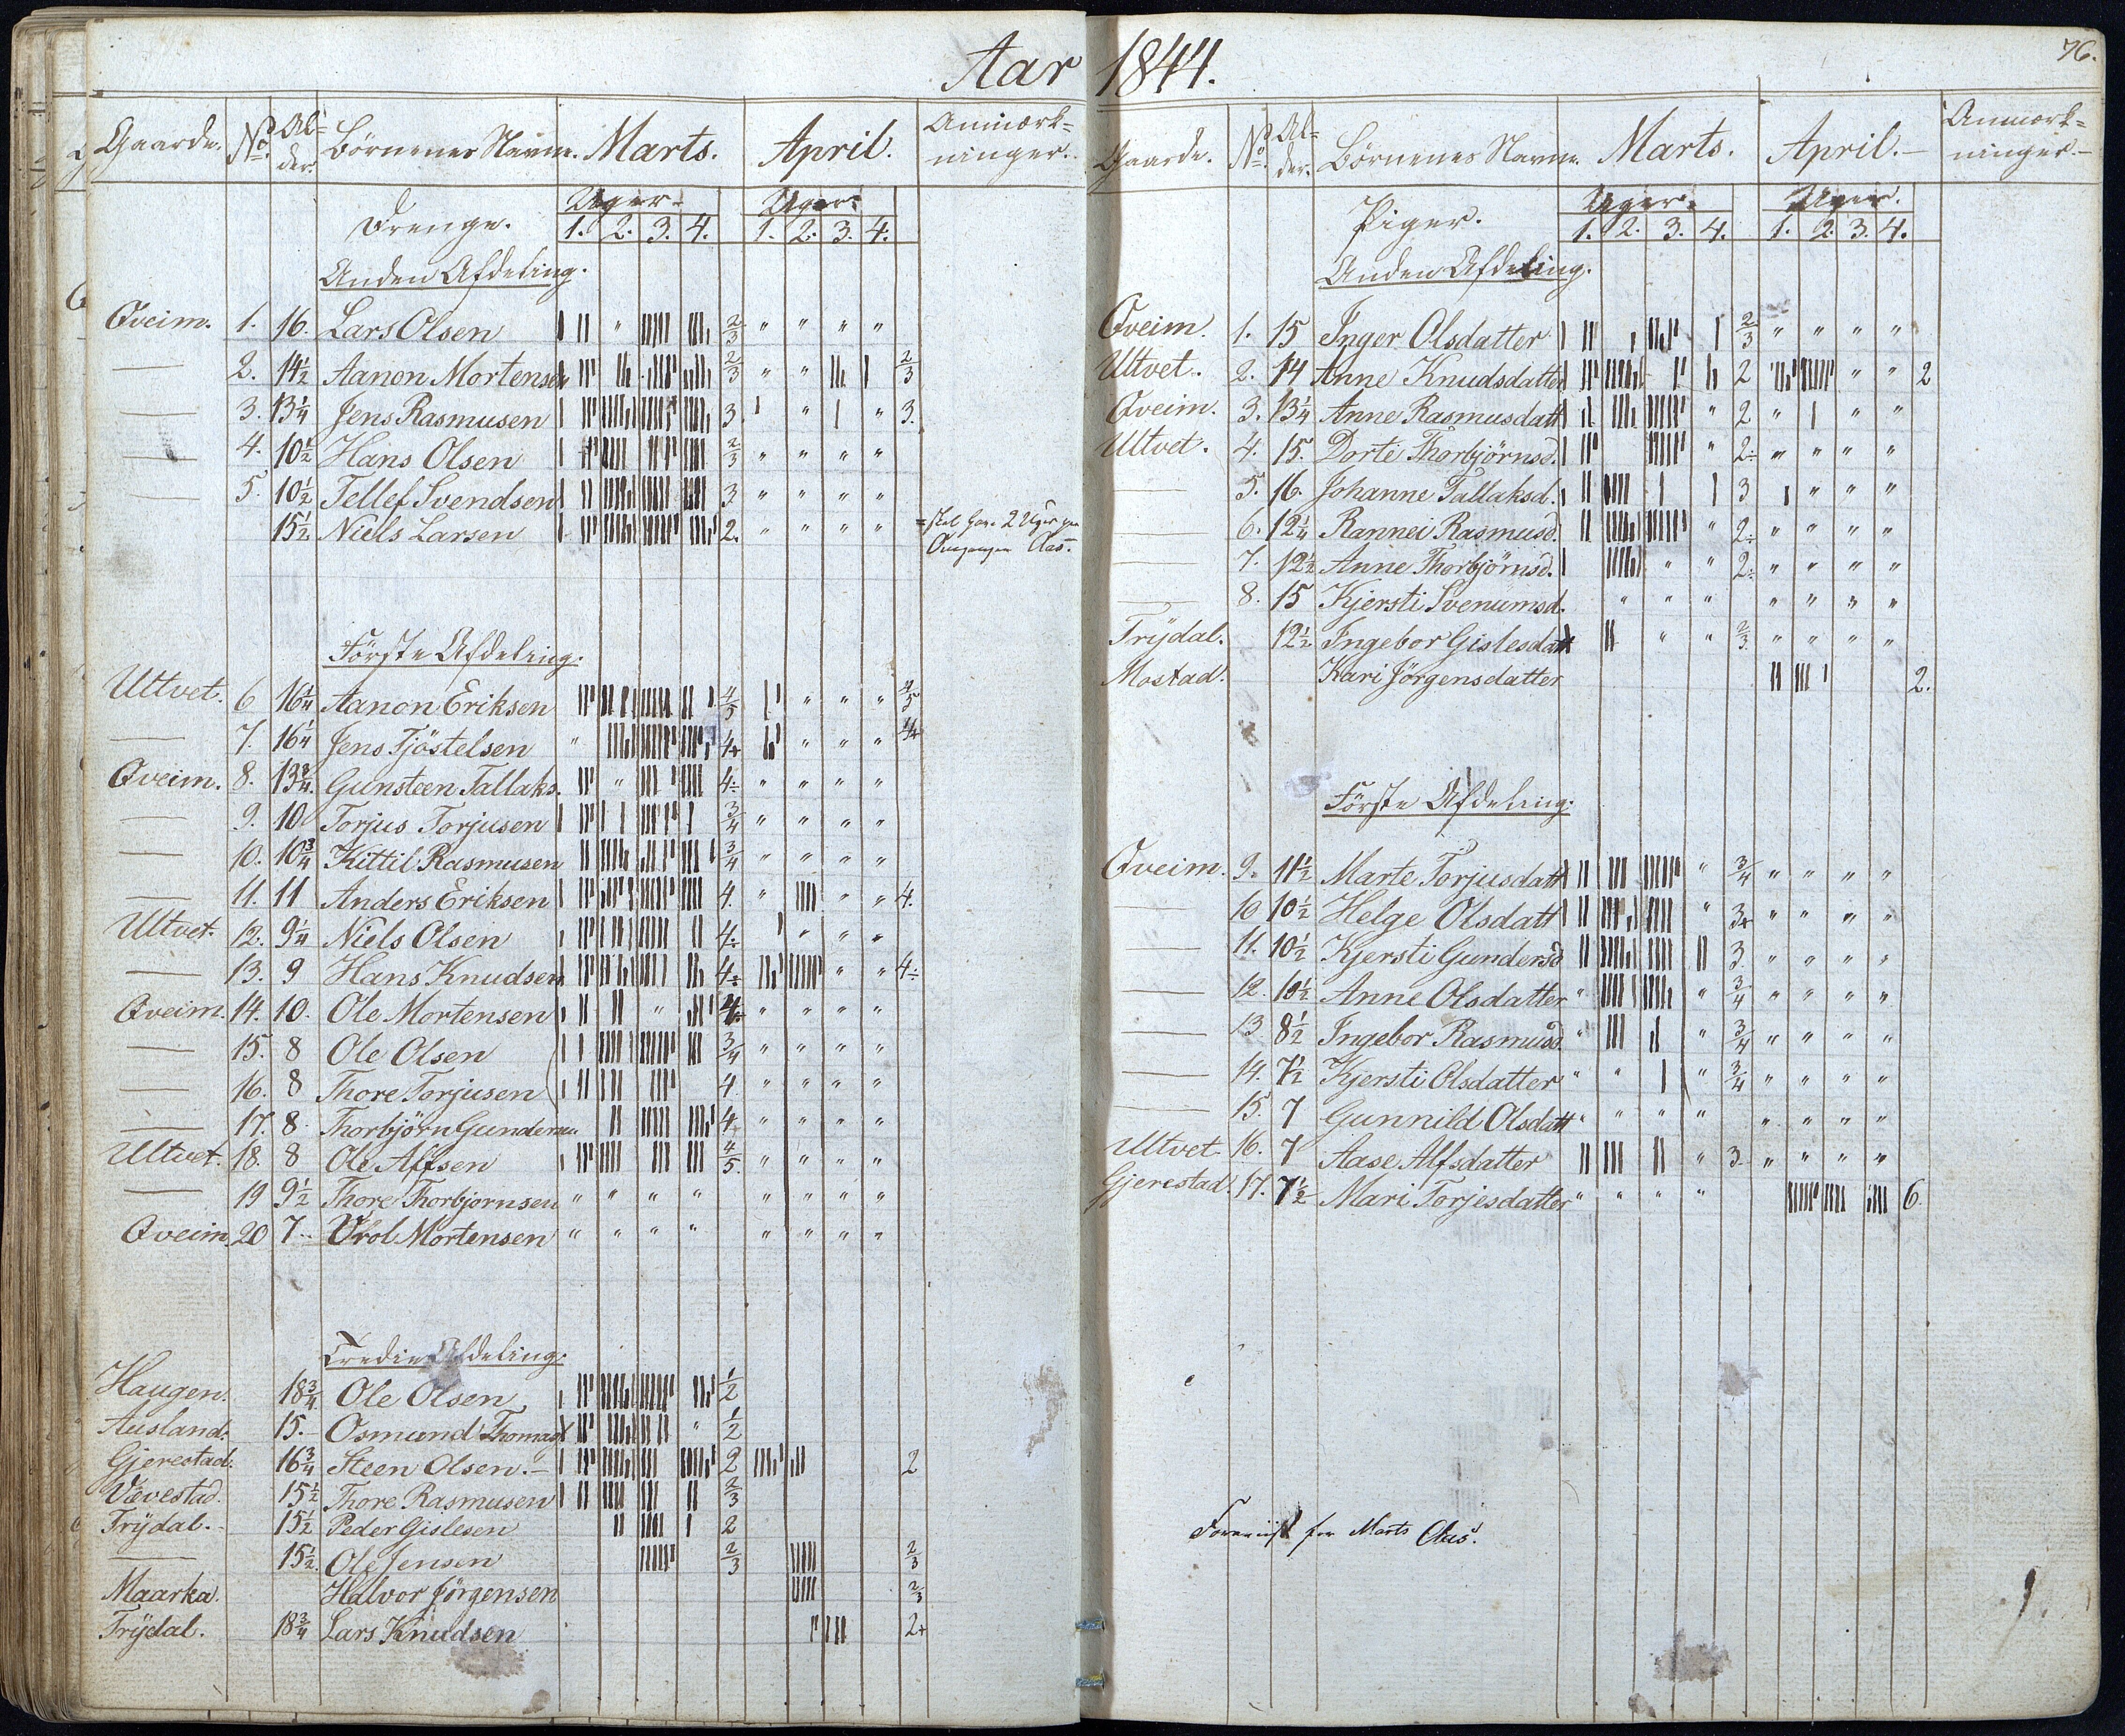 Aar 1844.
76.
Gaarde. No. Al-der. Börnenes Navne. Marts. April. Anmærk-ninger.
Drenge. Uger. Uger.
1. 2. 3. 4. 1. 2. 3. 4.
Anden Afdeling.
Qveim. 1. 16. Lars Olsen 2/3 " " " "
— 2. 14 1/2 Aanon Mortensen 2/3 " " 2/3
— 3. 13 1/4 Jens Rasmusen 3. " " 3.
— 4. 10 1/2 Hans Olsen 2/3 " " " "
— 5. 10 1/2 Tellef Svendsen 3 " " " "
15 1/2 Niels Larsen 2. " " " " 2 Uger
Første Afdeling.
Ultvet. 6 16 1/4 Aanon Eriksen 4/5 " " " 4/5
— 7. 16 1/4 Jens Tjöstelsen " 4+ " " " 4+
Qveim. 8. 13 3/4 Gunsteen Tallaks. " 4÷ " " " "
— 9. 10 Torjus Torjusen 3/4 " " " "
— 10. 10 3/4 Kittil Rasmusen 3/4 " " " "
— 11. 11 Anders Eriksen 4. " " " 4.
Ultvet. 12. 9 1/4 Niels Olsen 4÷ " " "
— 13. 9 Hans Knudsen 4÷ " " 4÷
Qveim. 14. 10. Ole Mortensen " 4÷ " " " "
— 15. 8 Ole Olsen 3/4 " " " "
— 16. 8 Thore Torjusen 4 " " " "
— 17. 8. Thorbjörn Gundersen 4 " " " "
Ultvet. 18. 8 Ole Alfsen 4/5. " " " "
— 19 9 1/2 Thore Thorbjornsen " " " " " " " "
Qveim. 20 7.. Urol Mortensen " " " " " " " "
Tredie Afdeling.
Haugen. 18 3/4 Ole Olsen 1/2
Ausland. 15.- Osmund Thomas " 1/2
Gjerestad. 16 3/4 Steen Olsen.- 2 2
Vævestad. 15 1/2 Thore Rasmusen 2/3
Trÿdal. 15 1/2 Peder Gislesen 2
— 15 1/2. Ole Jensen 2/3 2/3
Maarka. Halvor Jörgensen 2/3
Trÿdal. 18 3/4 Lars Knudsen 2+
Gaarde. No. Al-der. Börnenes Navne. Marts. April.- Anmærk-ninger.-
Piger. Uger. Uger.
1. 2. 3. 4. 1. 2. 3. 4.
Anden Afdeling.
Qveim. 1. 15 Inger Olsdatter 2/3 " " " "
Ultvet. 2. 14 Anne Knudsdatter 2 " " 2
Qveim. 3. 13 1/4 Anne Rasmusdatt " 2 " " "
Ultvet. 4. 15. Dorte Thorbjörnsd. " 2÷ " " " "
— 5. 16. Johanne Tallaksd. 3 " " "
— 6. 12 1/4 Rannei Rasmusd. " 2÷ " " " "
— 7. 12 1/2 Anne Thorbjörnsd. " " 2÷ " " " "
— 8. 15 Kjersti Svenumsd. " " " " " " "
Trÿdal. 12 1/2 Ingebor Gislesdatt " " 2/3. " " " "
Mostad. Kari Jörgensdatter 2.
Første Afdeling.
Qveim. 9. 11 1/2 Marte Torjusdatt " 3/4 " " " "
— 10 10 1/2 Helge Olsdatt " 3+ " " " "
— 11. 10 1/2 Kjersti Gundersd 3 " " " "
— 12. 10 1/2 Anne Olsdatter " " 3/4 " " " "
— 13 8 1/2 Ingebor Rasmusd. " " 3/4 " " " "
— 14. 7 1/2 Kjersti Olsdatter " " " 3/4 " " " "
— 15. 7 Gunnild Olsdatt " " " " " " " "
Ultvet 16. 7 Aase Alfsdatter " 3 " " " "
Gjerestad. 17. 7 1/2 Mari Torjesdatter " " " " 6.
Foreviist for Marts